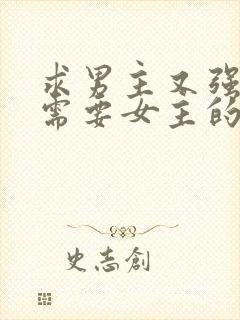 求男主又强
需要女主的
史志創